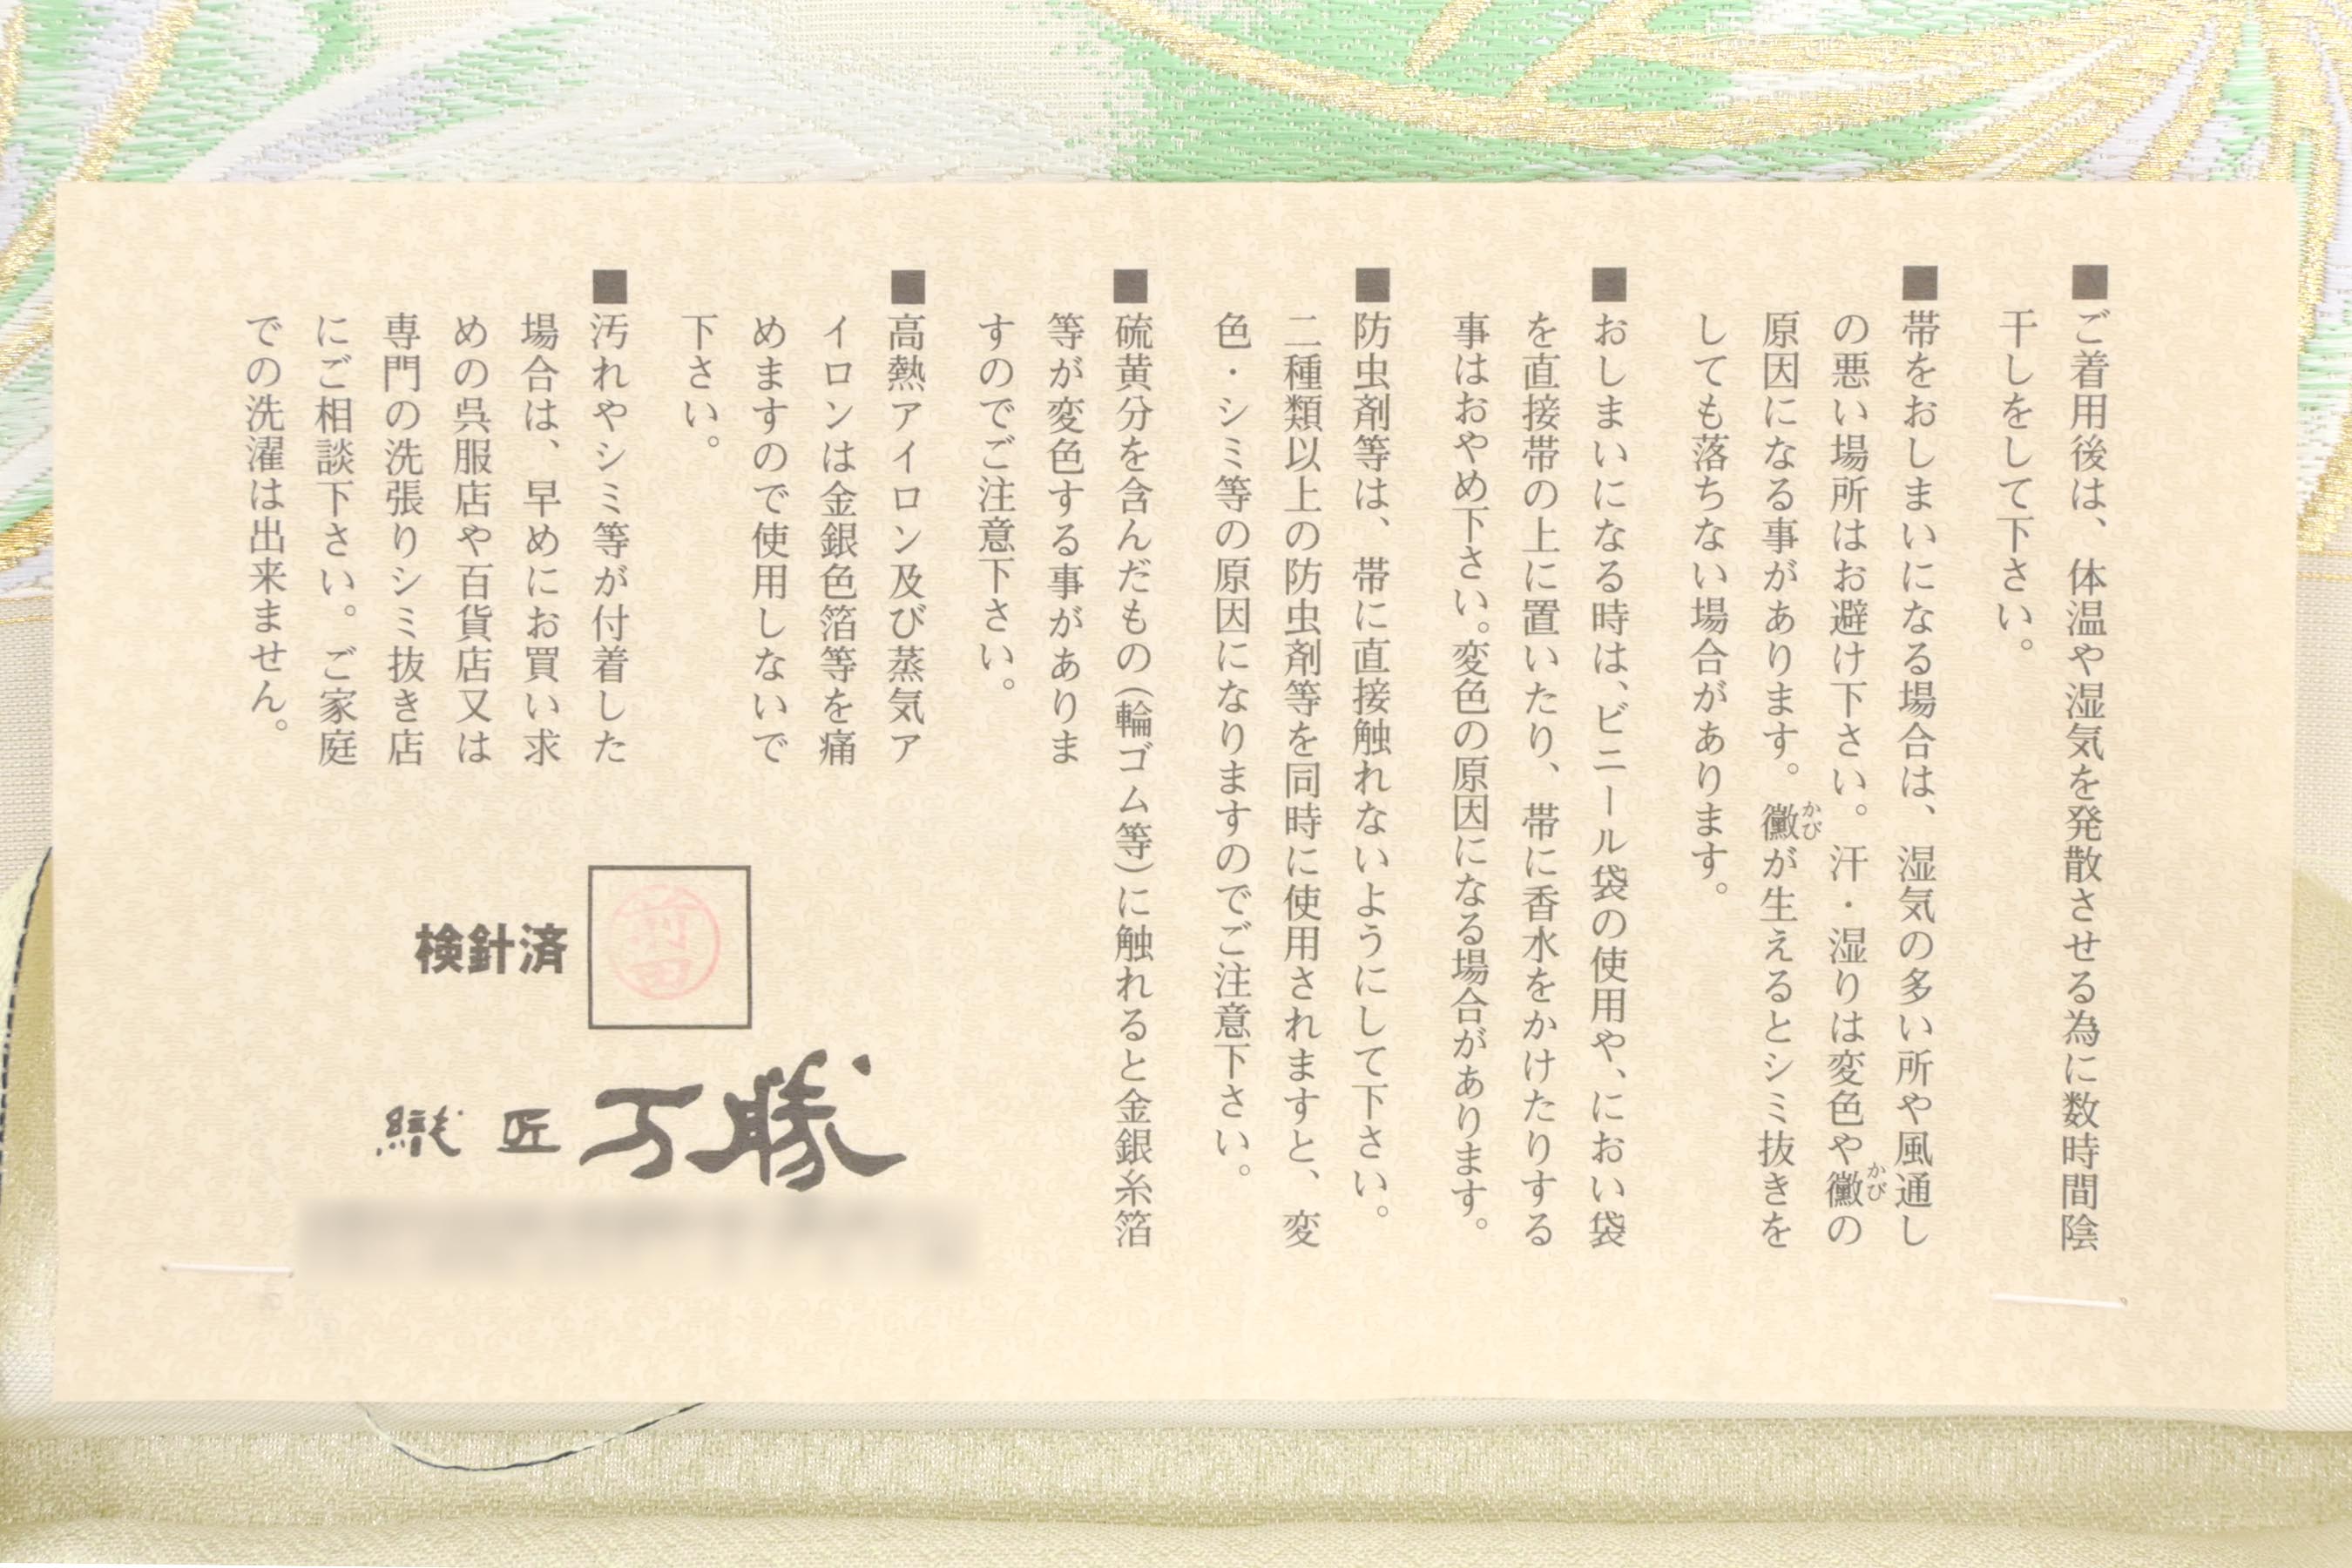 ■ご着用後は、体温や湿気を発散させる為に数時間陰
干しをして下さい。
■帯をおしまいになる場合は、湿気の多い所や風通し
の悪い場所はお避け下さい。汗・湿りは変色や黴(かび)の
原因になる事があります。黴(かび)が生えるとシミ抜きを
しても落ちない場合があります。
■おしまいになる時は、ビニール袋の使用や、におい袋
を直接帯の上に置いたり、帯に香水をかけたりする
事はおやめ下さい。変色の原因になる場合があります。
■防虫剤等は、帯に直接触れないようにして下さい。
二種類以上の防虫剤等を同時に使用されますと、変
色・シミ等の原因になりますのでご注意下さい。
■硫黄分を含んだもの(輪ゴム等)に触れると金銀糸箔
等が変色する事がありま
すのでご注意下さい。
■高熱アイロン及び蒸気ア
イロンは金銀色箔等を痛
めますので使用しないで
下さい。
■汚れやシミ等が付着した
場合は、早めにお買い求
めの呉服店や百貨店又は
専門の洗張りシミ抜き店
にご相談下さい。ご家庭
での洗濯は出来ません。
検針済
前田
織匠万勝